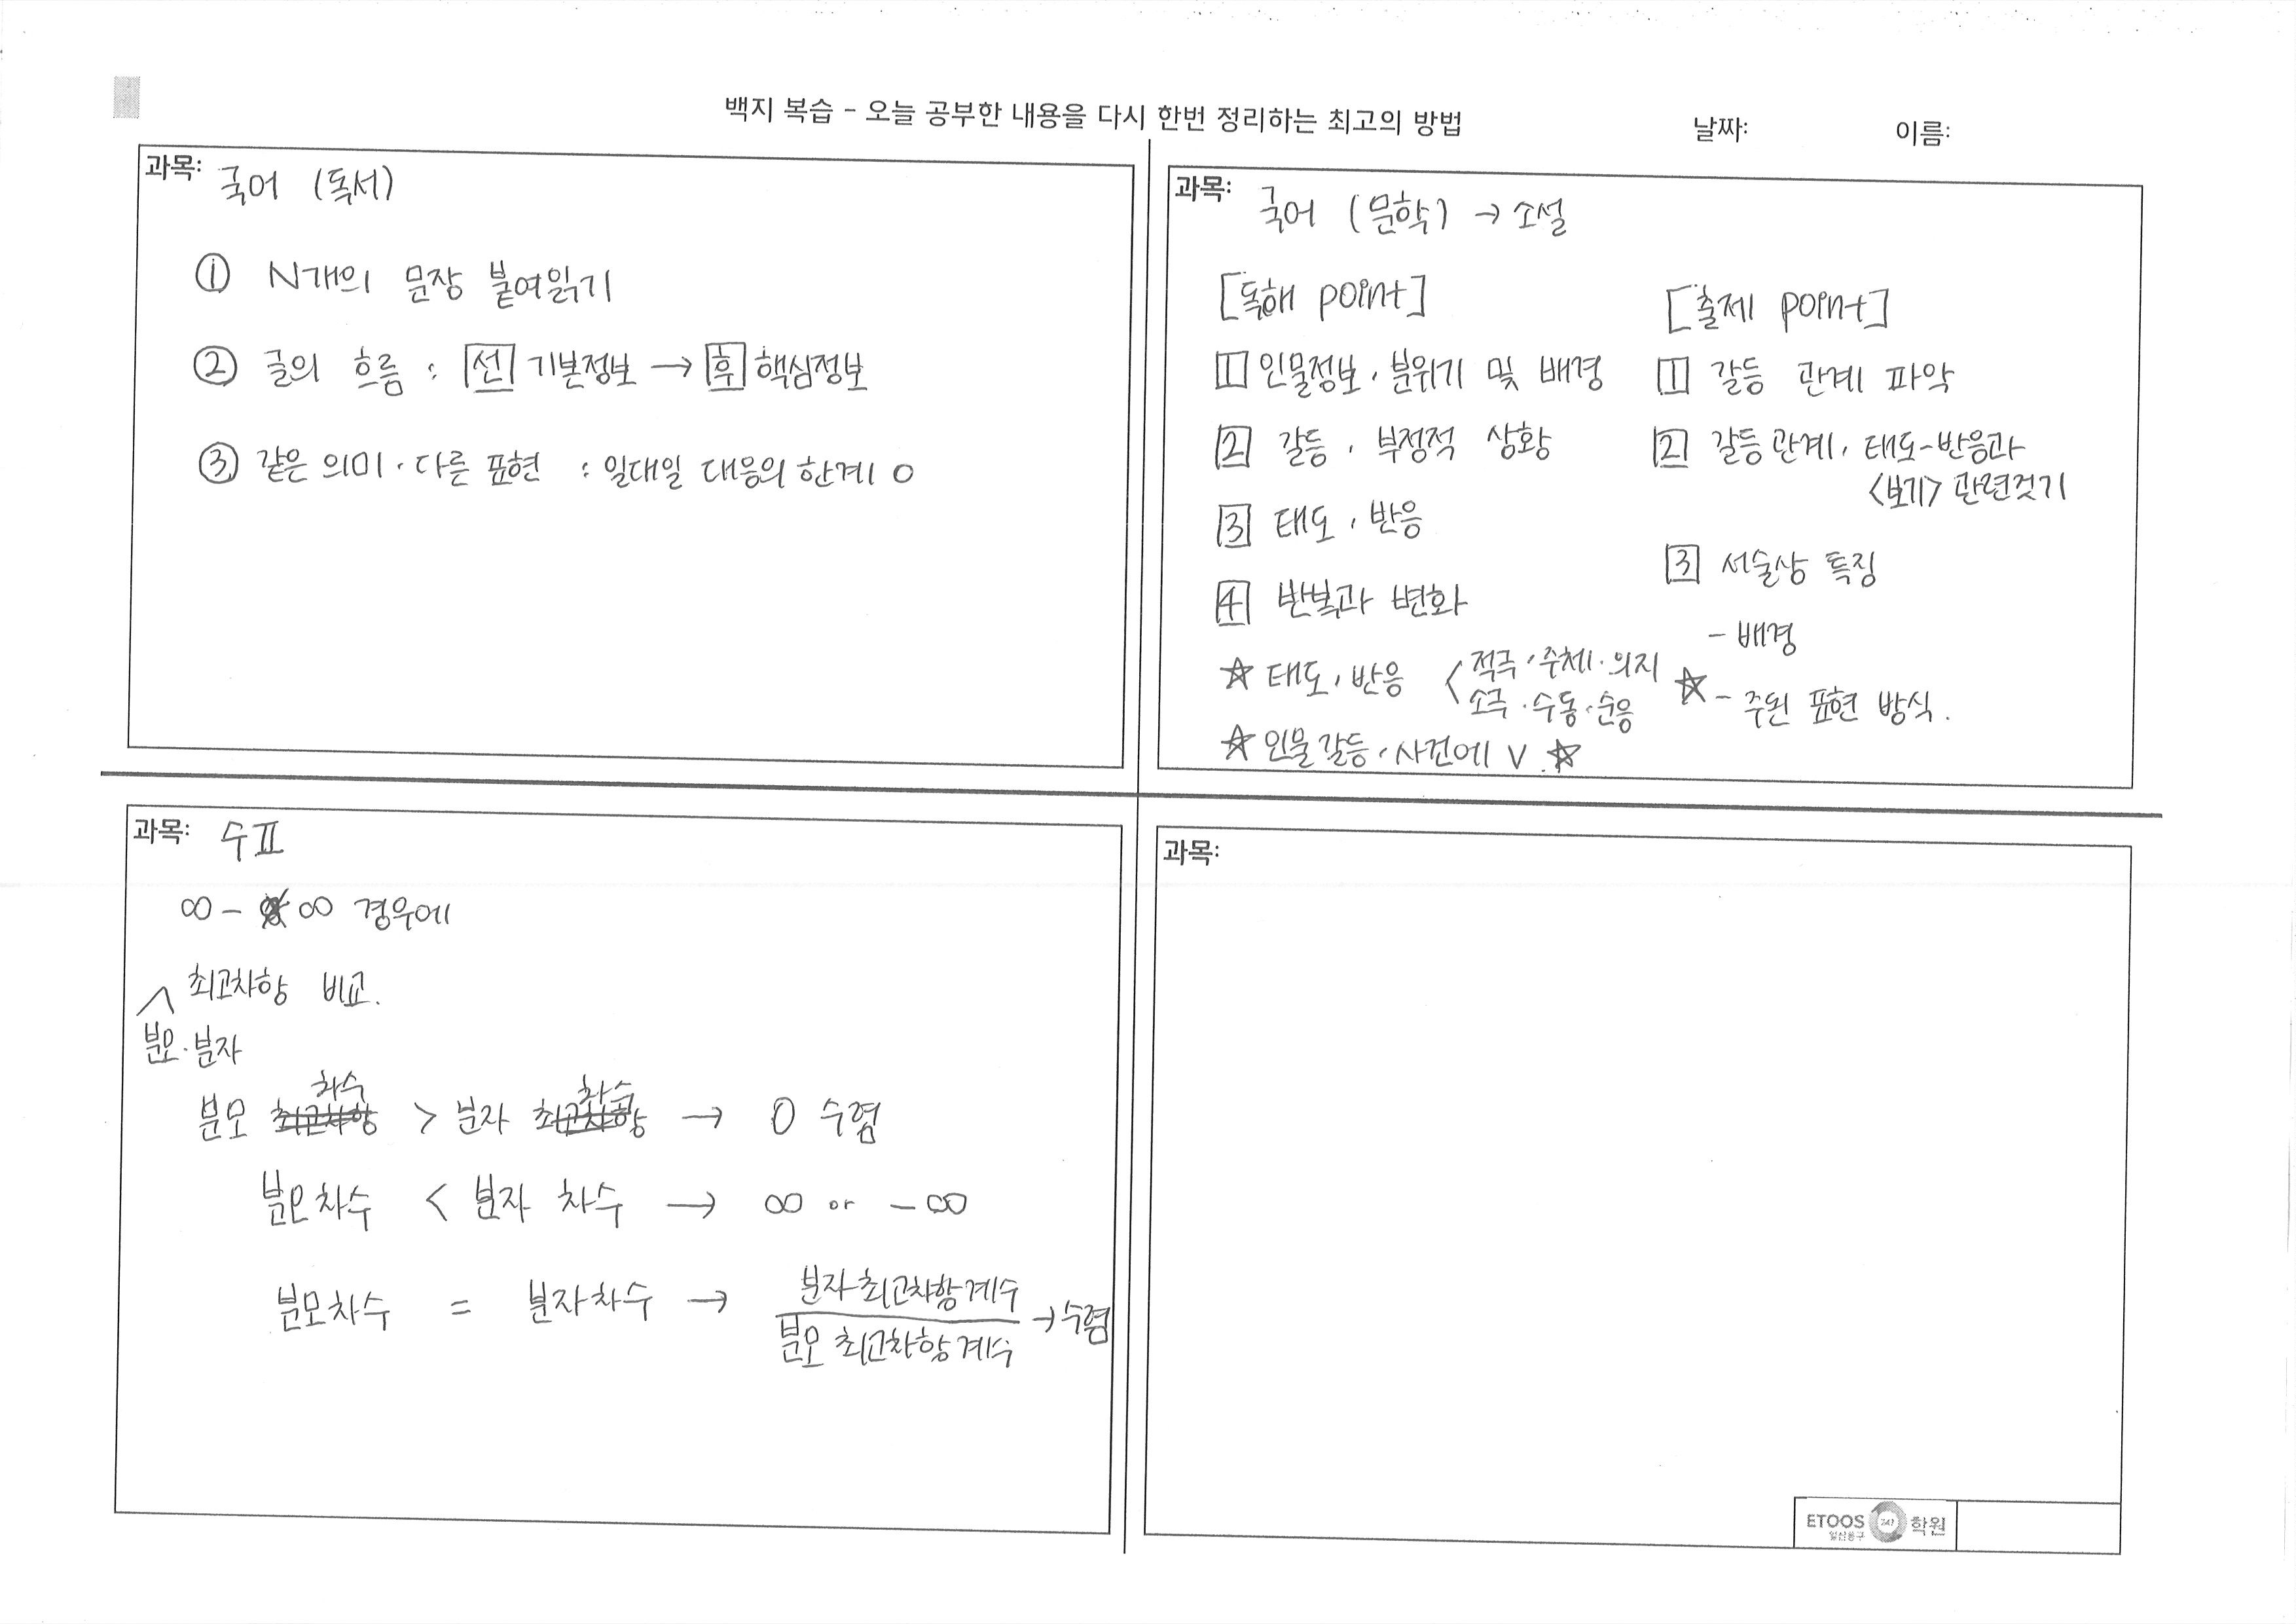 백지 복습 - 오늘 공부한 내용을 다시 한번 정리하는 최고의 방법
날짜:
이름:
과목: 국어 (독서)
① N개의 문장 붙여읽기
② 글의 흐름 : 선 기본정보 → 후 핵심정보
③ 같은 의미·다른 표현 : 일대일 대응의 한계 O
과목: 국어 (문학) → 소설
[독해 point]
1 인물정보, 분위기 및 배경
2 갈등, 부정적 상황
3 태도, 반응
4 반복과 변화
☆ 태도, 반응 < 적극·주체·의지
소극·수동·순응
☆ 인물갈등, 사건에 V ☆
[출제 point]
1 갈등 관계 파악
2 갈등관계, 태도-반응과
<보기> 관련짓기
3 서술상 특징
- 배경
☆ - 주된 표현 방식.
과목: 수Ⅱ
∞ - ∞ 경우에
최고차항 비교.
분모·분자
분모 차수 > 분자 차수 → 0 수렴
분모차수 < 분자 차수 → ∞ or -∞
분모차수 = 분자차수 → 분자최고차항계수
분모 최고차항계수 → 수렴
과목:
ETOOS 247 학원